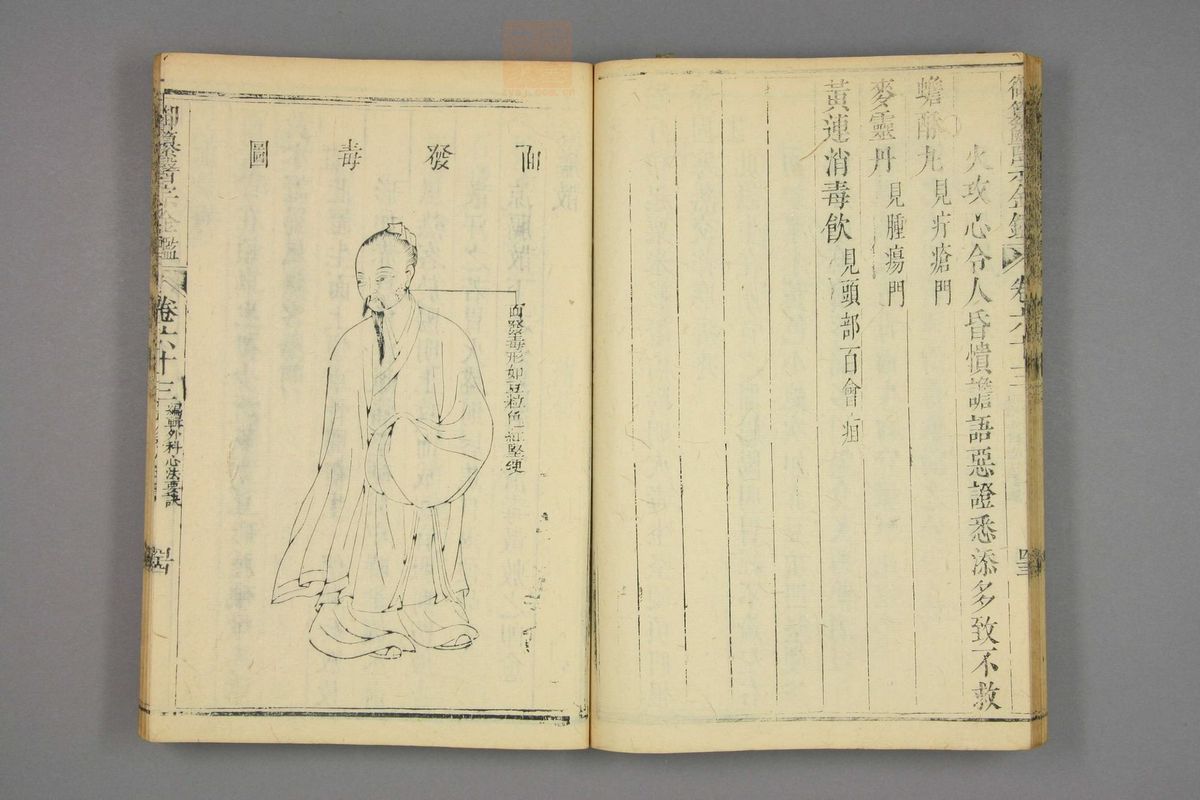 御纂醫宗金鑑 卷六十三
火攻心令人昏憒譫語惡證悉添多致不救
蟾酥丸見疔瘡門
麥靈丹見腫瘍門
黃連消毒飲見頭部百會疽
面發毒圖
面發毒形如豆粒色紅堅硬
御纂醫宗金鑑 卷六十三 編輯外科心法要訣